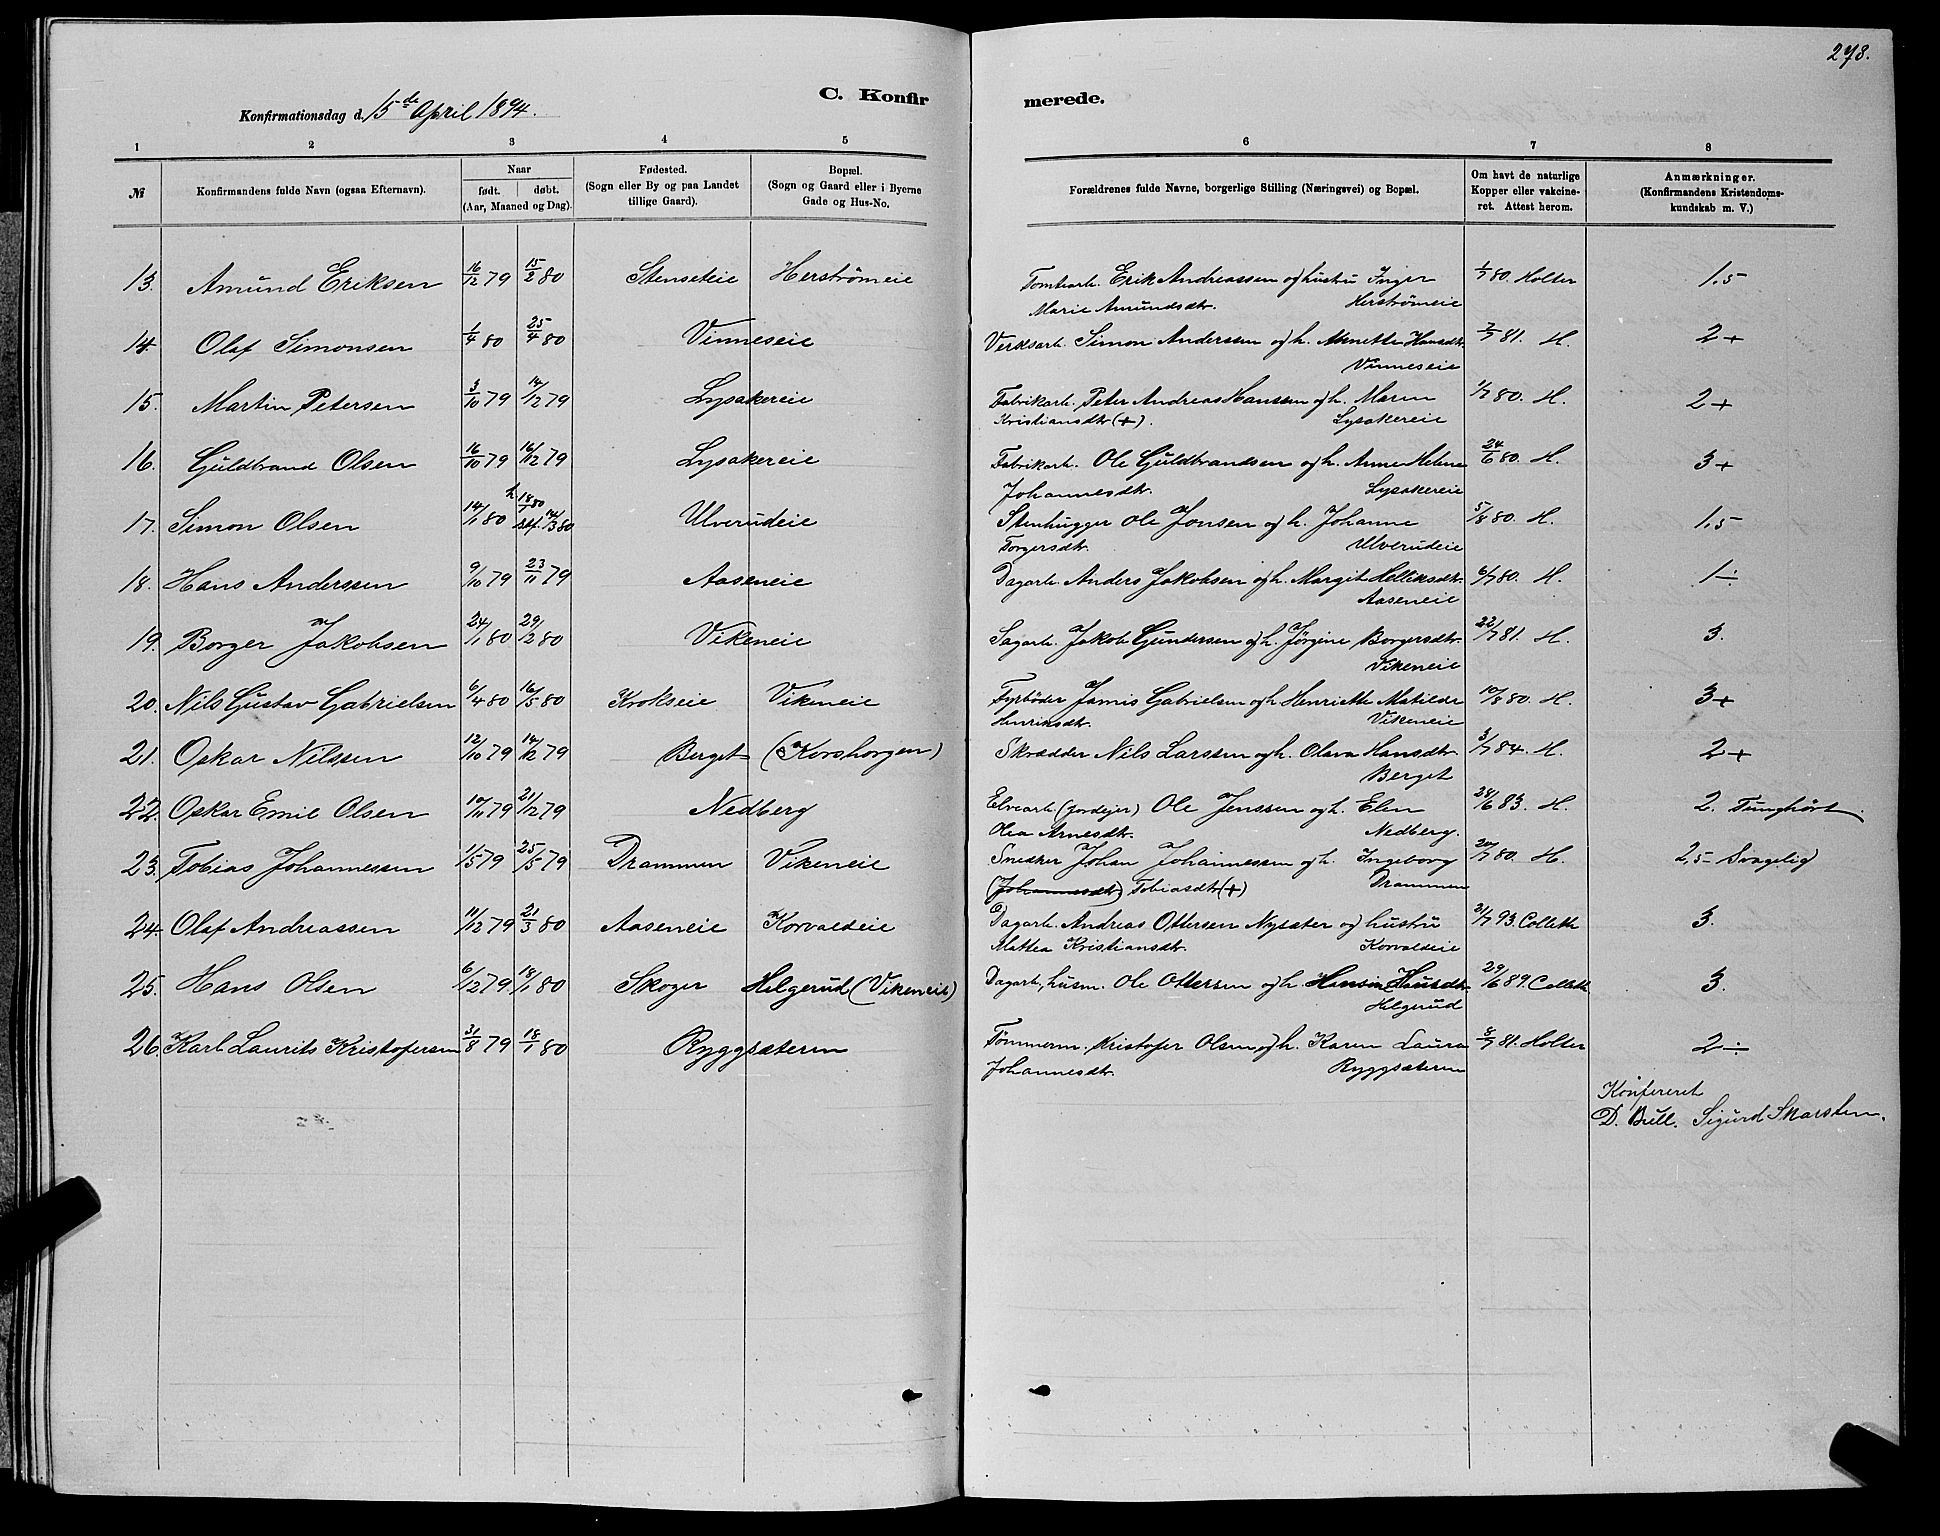 278.
C. Konfirmerede.
Konfirmationsdag d. 15de April 1894.
1 2 3 4 5 6 7 8
№
Konfirmandens fulde Navn (ogsaa Efternavn).
Naar
født. døbt.
(Aar, Maaned og Dag).
Fødested.
(Sogn eller By og paa Landet
tillige Gaard).
Bopæl.
(Sogn og Gaard eller i Byerne
Gade og Hus-No.
Forældrenes fulde Navne, borgerlige Stilling (Næringsvei) og Bopæl.
Om havt de naturlige
Kopper eller vakcine-
ret. Attest herom.
Anmærkninger.
(Konfirmandens Kristendoms-
kundskab m. V.)
13. Amund Eriksen 16/12 79 15/2 80 Stenseteie Herströmeie Tomtearb. Erik Andreassen og hustru Inger 1/7 80. Holter 1,5
Marie Amundsdtr. Herströmeie
14. Olaf Simonsen 1/4 80 25/4 80 Vinneseie Verksarb. Simon Anderssen og h. Annette Hansdtr. 7/7 81. H. 2+
Vinneseie
15. Martin Petersen 3/10 79 14/12 79 Lysakereie Fabrikarb. Peter Andreas Hanssen og h. Maren 1/7 80. H. 2+
Kristiansdtr (+). Lysakereie
16. Guldbrand Olsen 16/10 79 16/12 79 Lysakereie Fabrikarb. Ole Guldbrandsen og h. Anne Helene 24/6 80. H. 3+
Johannesdtr. Lysakereie
17. Simon Olsen 14/1 80 h. 18/1 80 stf. 14/3 80 Ulverudeie Stenhugger Ole Jonsen og h. Johanne 5/8 80. H. 1,5
Torgersdtr. Ulverudeie
18. Hans Anderssen 9/10 79 23/11 79 Aaseneie Dagarb. Anders Jakobsen og h. Margit Helliksdtr. 6/7 80. H. 1÷
Aaseneie
19. Borger Jakobsen 24/1 80 29/2 80 Vikeneie Sagarb. Jakob Gundersen og h. Jørgine Borgersdtr. 22/7 81. H. 3.
Vikeneie
20. Nils Gustav Gabrielsen 6/4 80 16/5 80 Krokseie Vikeneie Fyrbøder Jamis Gabrielsen og h. Henriette Matilde 10/8 80. H. 3+
Henriksdtr. Vikeneie
21. Oskar Nilssen 12/10 79 14/12 79 Berget (Korshorgen) Skrædder Nils Larssen og h. Olava Hansdtr. 3/7 84. H. 2+
Berget
22. Oskar Emil Olsen 10/11 79 21/12 79 Nedberg Elvearb. (jordejer) Ole Jenssen og h. Elen 28/6 83. H. 2. Tunghørt
Olea Arnesdtr. Nedberg.
23. Tobias Johannessen 1/5 79 25/5 79 Drammen Vikeneie Snedker Johan Johannessen og h. Ingeborg 20/7 80. H. 2,5 Svagelig
(Johannesdtr) Tobiasdtr (+) Drammen
24. Olaf Andreassen 11/12 79 21/3 80 Aaseneie Korvaldeie Dagarb. Andreas Ottersen Nysæter og hustru 21/7 93. Collette 3.
Mattea Kristiansdtr. Korvaldeie
25. Hans Olsen 6/12 79 18/1 80 Skoger Helgerud (Vikeneie) Dagarb., husm. Ole Ottersen og h. Hansine Hansdtr. 29/6 89. Collette 3.
Helgerud
26. Karl Laurits Kristofersen 31/8 79 18/1 80 Ryggsæteren Tømmerm. Kristofer Olsen og h. Karen Laura 8/7 81. Holter 2÷
Johannesdtr. Ryggsæteren
Konfereret
D. Bull. Sigurd Skarsten.